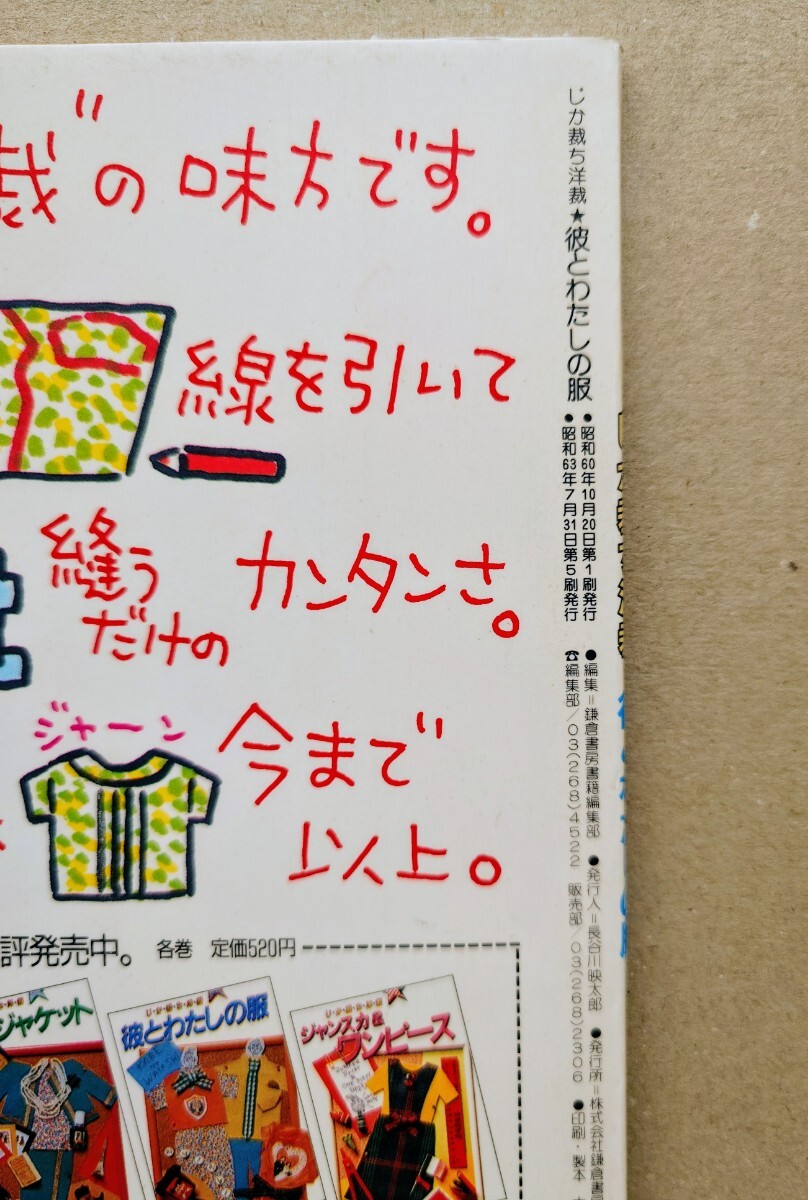 裁”の味方です。
線を引いて
縫う
だけの
カンタンさ。
ジャーン
今まで
以上。
評発売中。 各巻 定価520円
ジャケット
彼とわたしの服
ジャンスカ&
ワンピース
じか裁ち洋裁★彼とわたしの服
●昭和60年10月20日第1刷発行
●昭和63年7月31日第5刷発行
●編集=鎌倉書房書籍編集部 ●発行人=長谷川映太郎 ●発行所=株式会社鎌倉書
☎編集部/03(268)4522 販売部/03(268)2306 ●印刷・製本